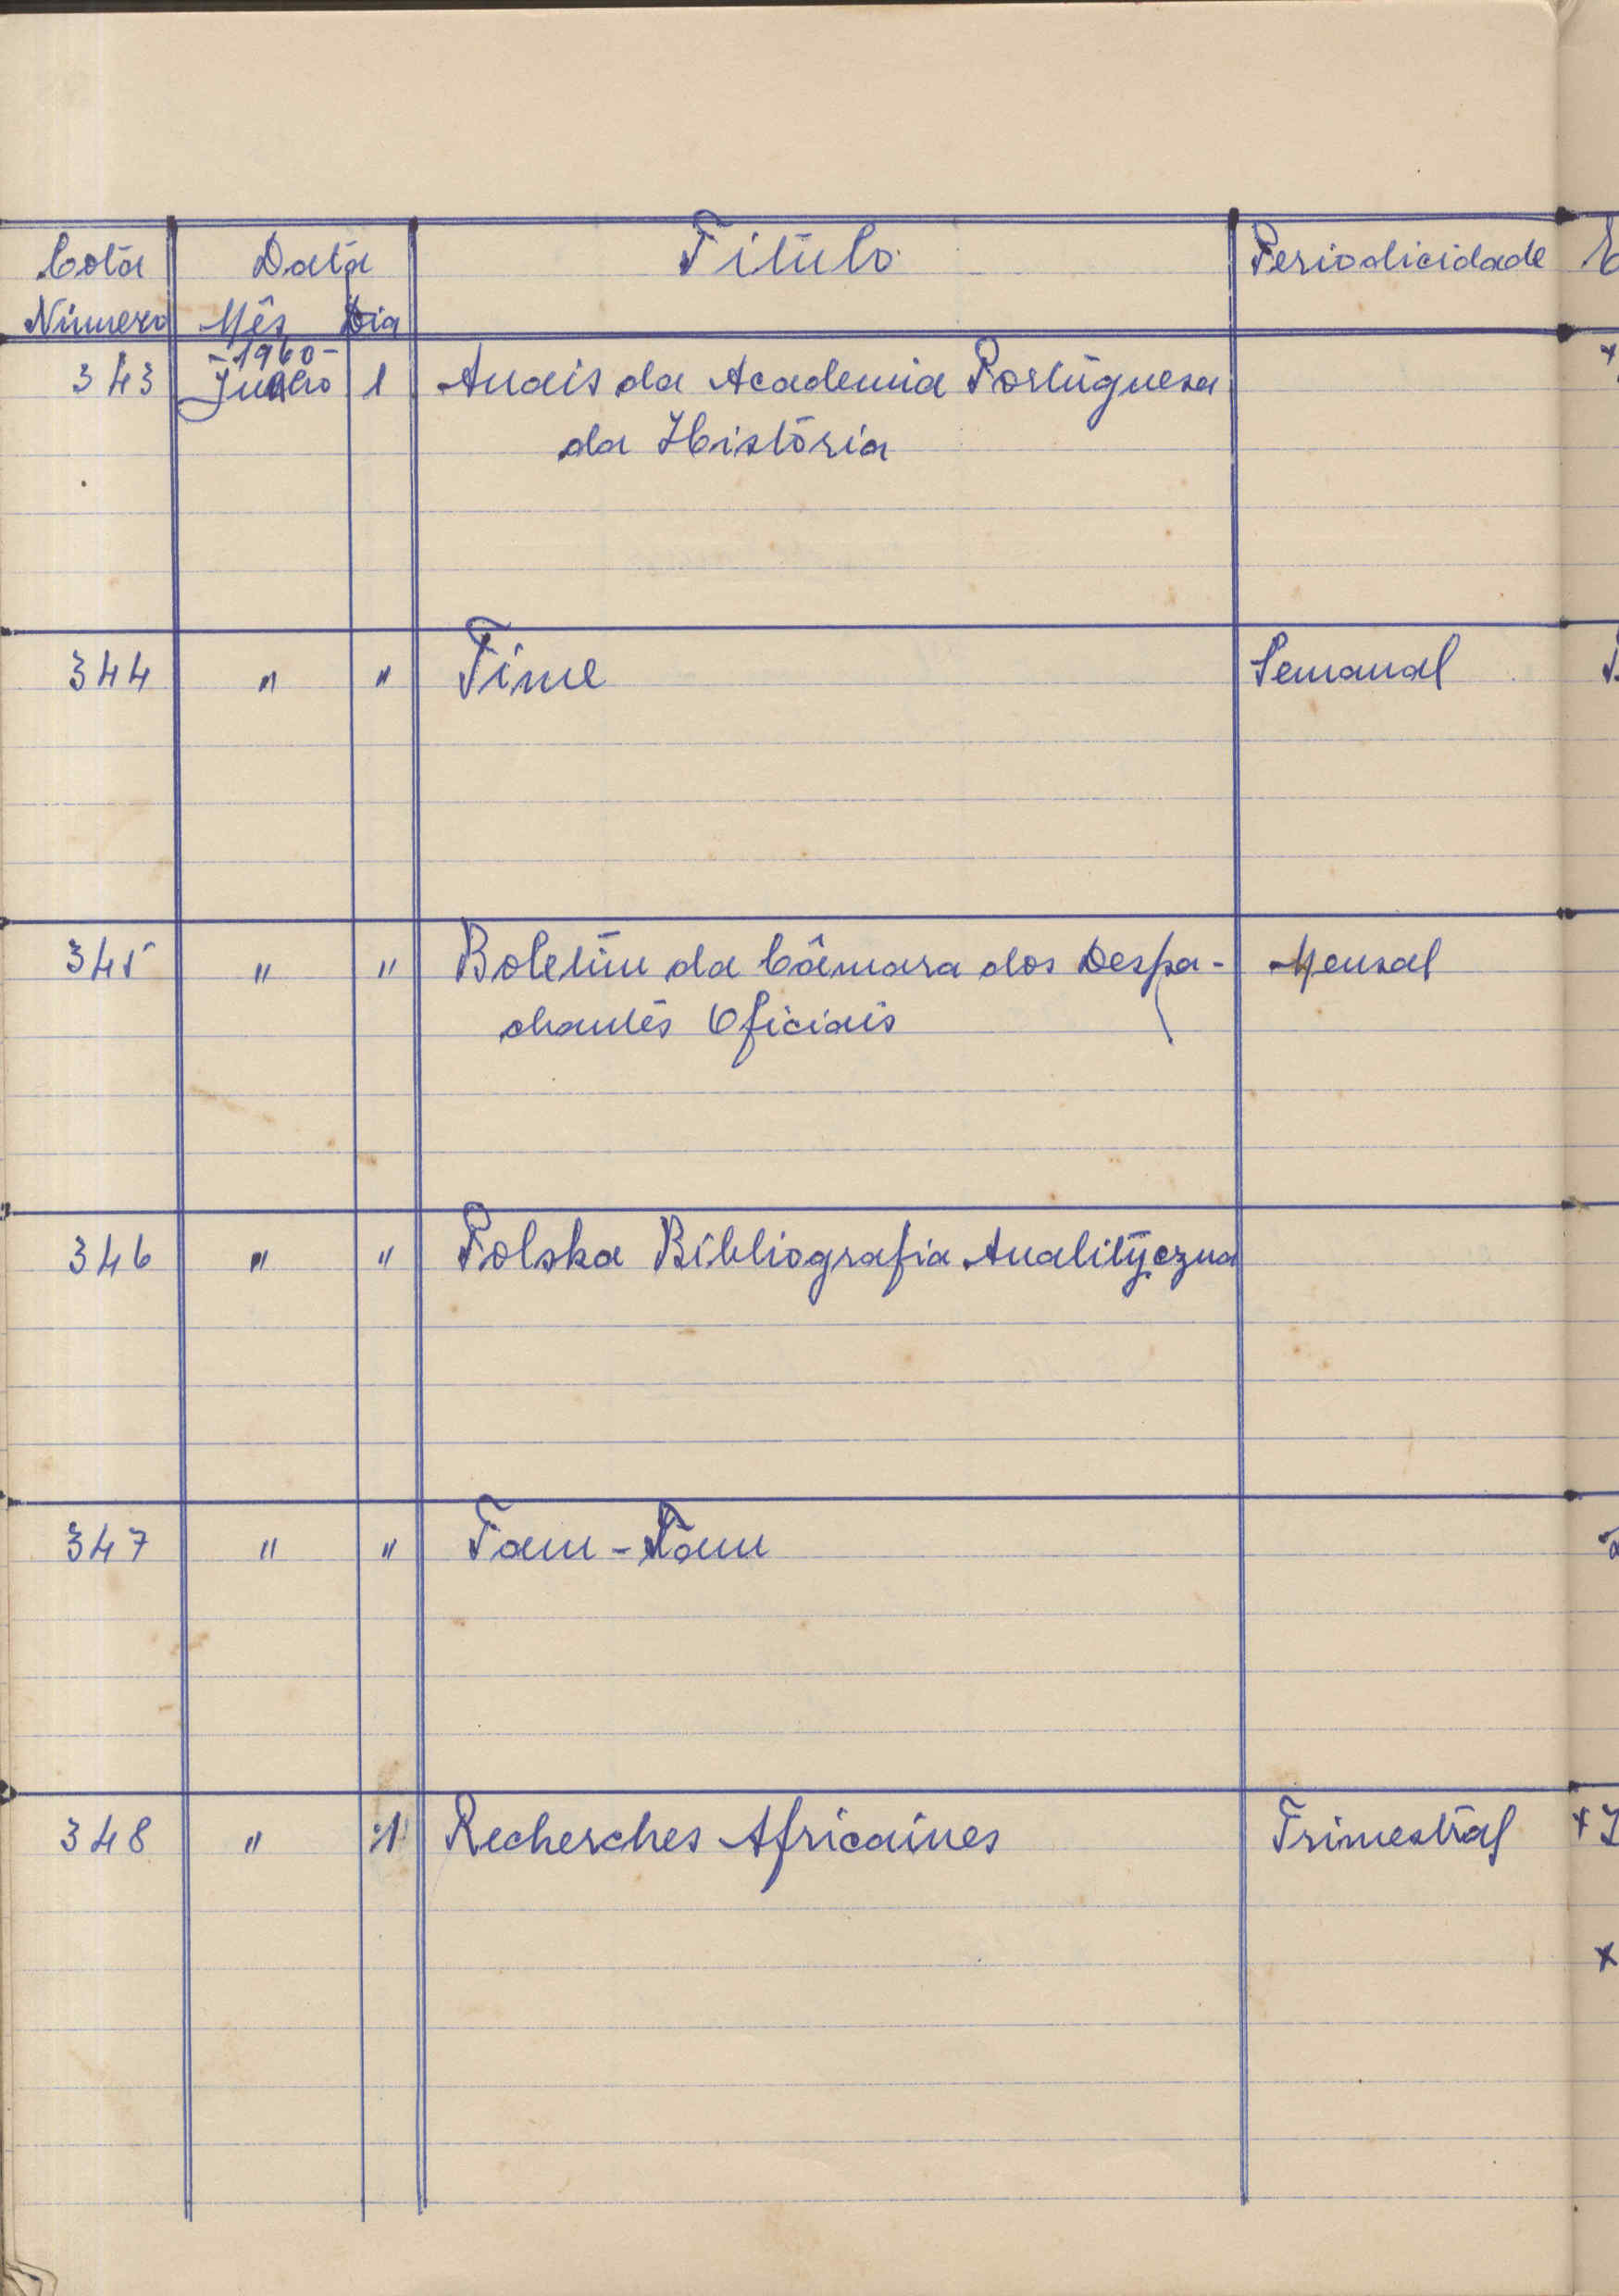 Cota Data Título Periodicidade
Número Mês Dia
-1960-
343 1 Anais da Academia Portuguesa
da História
344 " " Time Semanal
345 " " Boletim da Câmara dos Despa-  Mensal
chantes Oficiais
346 " " Polska Bibliografia Analityczna
347 " " Tam-Tam
348 " 1 Recherches Africaines Trimestral